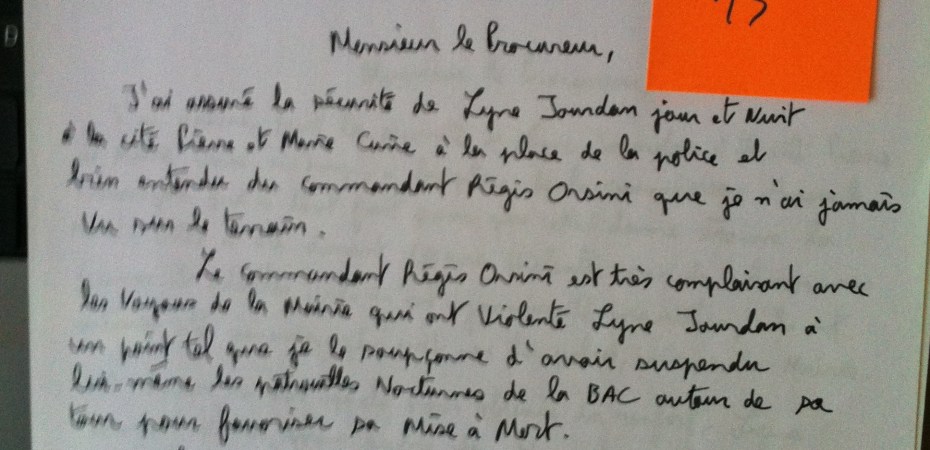 Monsieur le Procureur,
J'ai assuré la sécurité de Lyne Jourdan jour et Nuit
à la cité Pierre et Marie Curie à la place de la police et
bien entendu du commandant Régis Orsini que je n'ai jamais
Vu sur le terrain.
Le commandant Régis Orsini est très complaisant avec
les Voyous de la Mairie qui ont Violenté Lyne Jourdan à
un point tel que je le soupçonne d'avoir suspendu
lui-même les patrouilles Nocturnes de la BAC autour de sa
tour pour favoriser sa Mise à Mort.